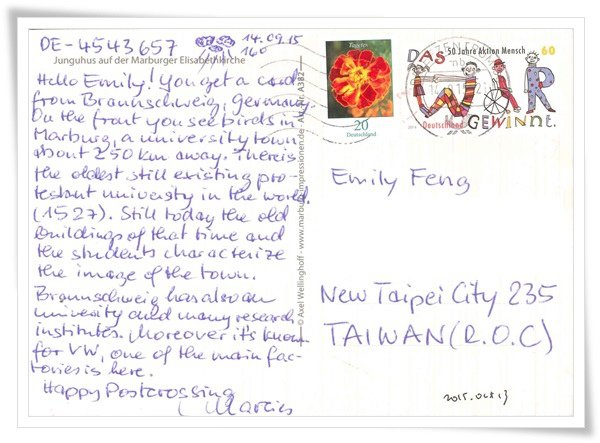 DE-4543657
14.09.15
160
Junguhus auf der Marburger Elisabethkirche
Hello Emily! You get a card
from Braunschweig, Germany.
On the front you see birds in
Marburg, a university town
about 250 km away. There is
the oldest still existing pro-
testant university in the world.
(1527). Still today the old
buildings of that time and
the students characterize
the image of the town.
Braunschweig has also an
university and many research
institutes. Moreover it's known
for VW, one of the main fac-
tories is here.
Happy Postcrossing
© Axel Wellinghoff - www.marburg-impressionen.de - Art. Nr. A382
Tagetes
20
Deutschland
50 Jahre Aktion Mensch
60
DAS
WIR
GEWINNT.
Deutschland
Emily Feng
New Taipei City 235
TAIWAN (R.O.C)
2015.Oct 13